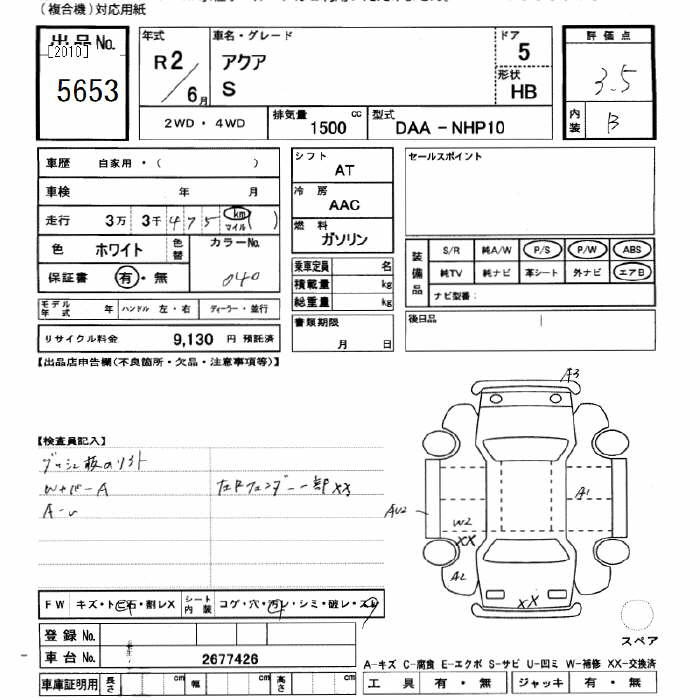 (複合機)対応用紙
出品No.
[2010]
5653
年式
R2/6月
車名・グレード
アクア
S
ドア
5
形状
HB
評価点
3.5
内装
B
2WD・4WD
排気量
1500 cc
型式
DAA-NHP10
車歴 自家用・( )
車検 年 月
走行 3万 3千 4 7 5 km マイル ( )
色 ホワイト 色替
カラーNo.
040
保証書 有・無
モデル年式 年 ハンドル 左・右 ディーラー・並行
リサイクル料金 9,130 円 預託済
シフト
AT
冷房
AAC
燃料
ガソリン
乗車定員 名
積載量 kg
総重量 kg
書類期限
月 日
セールスポイント
装備品
S/R 純A/W P/S P/W ABS
純TV 純ナビ 革シート 外ナビ エアB
ナビ型番:
後日品
【出品店申告欄(不良箇所・欠品・注意事項等)】
【検査員記入】
A-
A3
A1
AU2
W2
XX
A2
XX
スペア
FW キズ・トビ石・割レX シート内装 コゲ・穴・汚レ・シミ・破レ・スレ
登録No.
車台No. 2677426
車庫証明用 長さ cm 幅 cm 高さ cm
A-キズ C-腐食 E-エクボ S-サビ U-凹ミ W-補修 XX-交換済
工具 有・無 ジャッキ 有・無